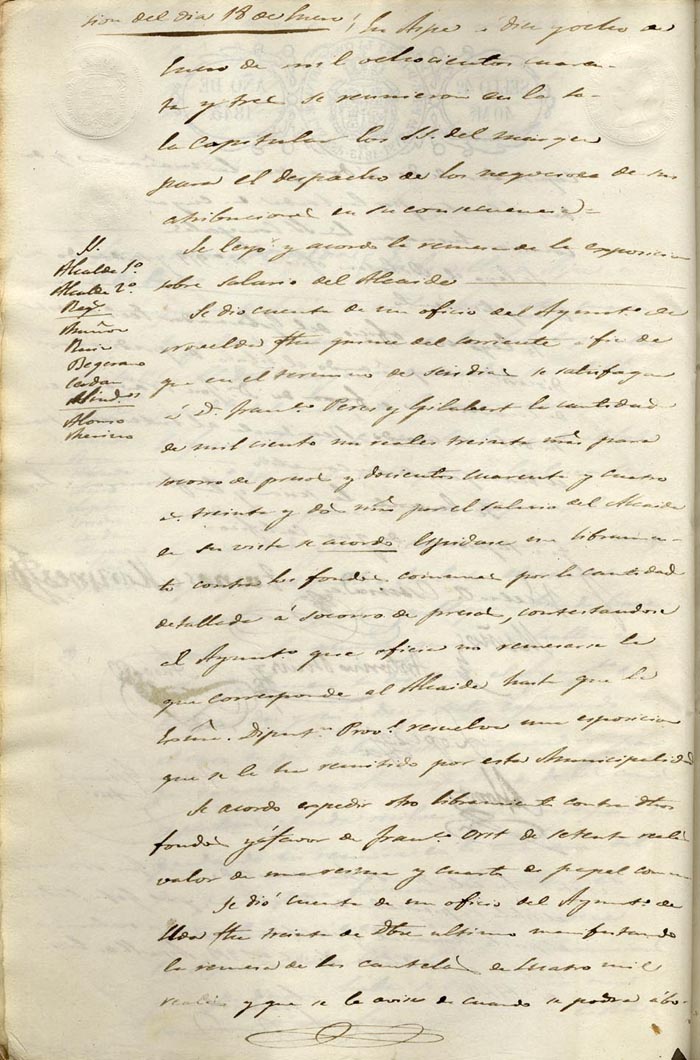 sion del dia 18 de Enero / En Aspe á diez y ocho de
Enero de mil ochocientos cuaren-
ta y tres se reunieron en la Sa-
la Capitular los SS. del margen
para el despacho de los negocios de sus
atribuciones en su consecuencia =
Se leyó y acordó la remesa de la exposicion
sobre salario del Alcaide
SS.
Alcalde 1º
Alcalde 2º
Reg.s
Muñoz
Ruiz
Begerano
Cerdan
Sind.s
Alonso
Se dio cuenta de un oficio del Ayunt.º de
Novelda fha quince del corriente á fin de
que en el termino de seis dias se satisfagan
á D. Fran.co Peres y Gilabert la cantidad
de mil ciento un reales treinta mrs para
socorro de presos y docientos cuarenta y cuatro
r. treinta y dos mrs por el salario del Alcaide
en su vista se acordó Espidase un libramien-
to contra los fondos comunes por la cantidad
detallada á socorro de presos, contestandose
al Ayunt.º que oficia no remesarse la
que corresponde al Alcaide hasta que la
Escma. Diput.n Prov.l resuelva una esposicion
que se le ha remitido por esta Municipalidad
Se acordó expedir otro libramiento contra dhos
fondos y á favor de Fran.co Ort de setenta reales
valor de una resma y cuarta de papel comun
Se dió cuenta de un oficio del Ayunt.º de
Elda fha treinta de Dbre ultimo manifestando
la remesa de las cautelas de cuatro mil
reales y que se le avise de cuando se podra abo-